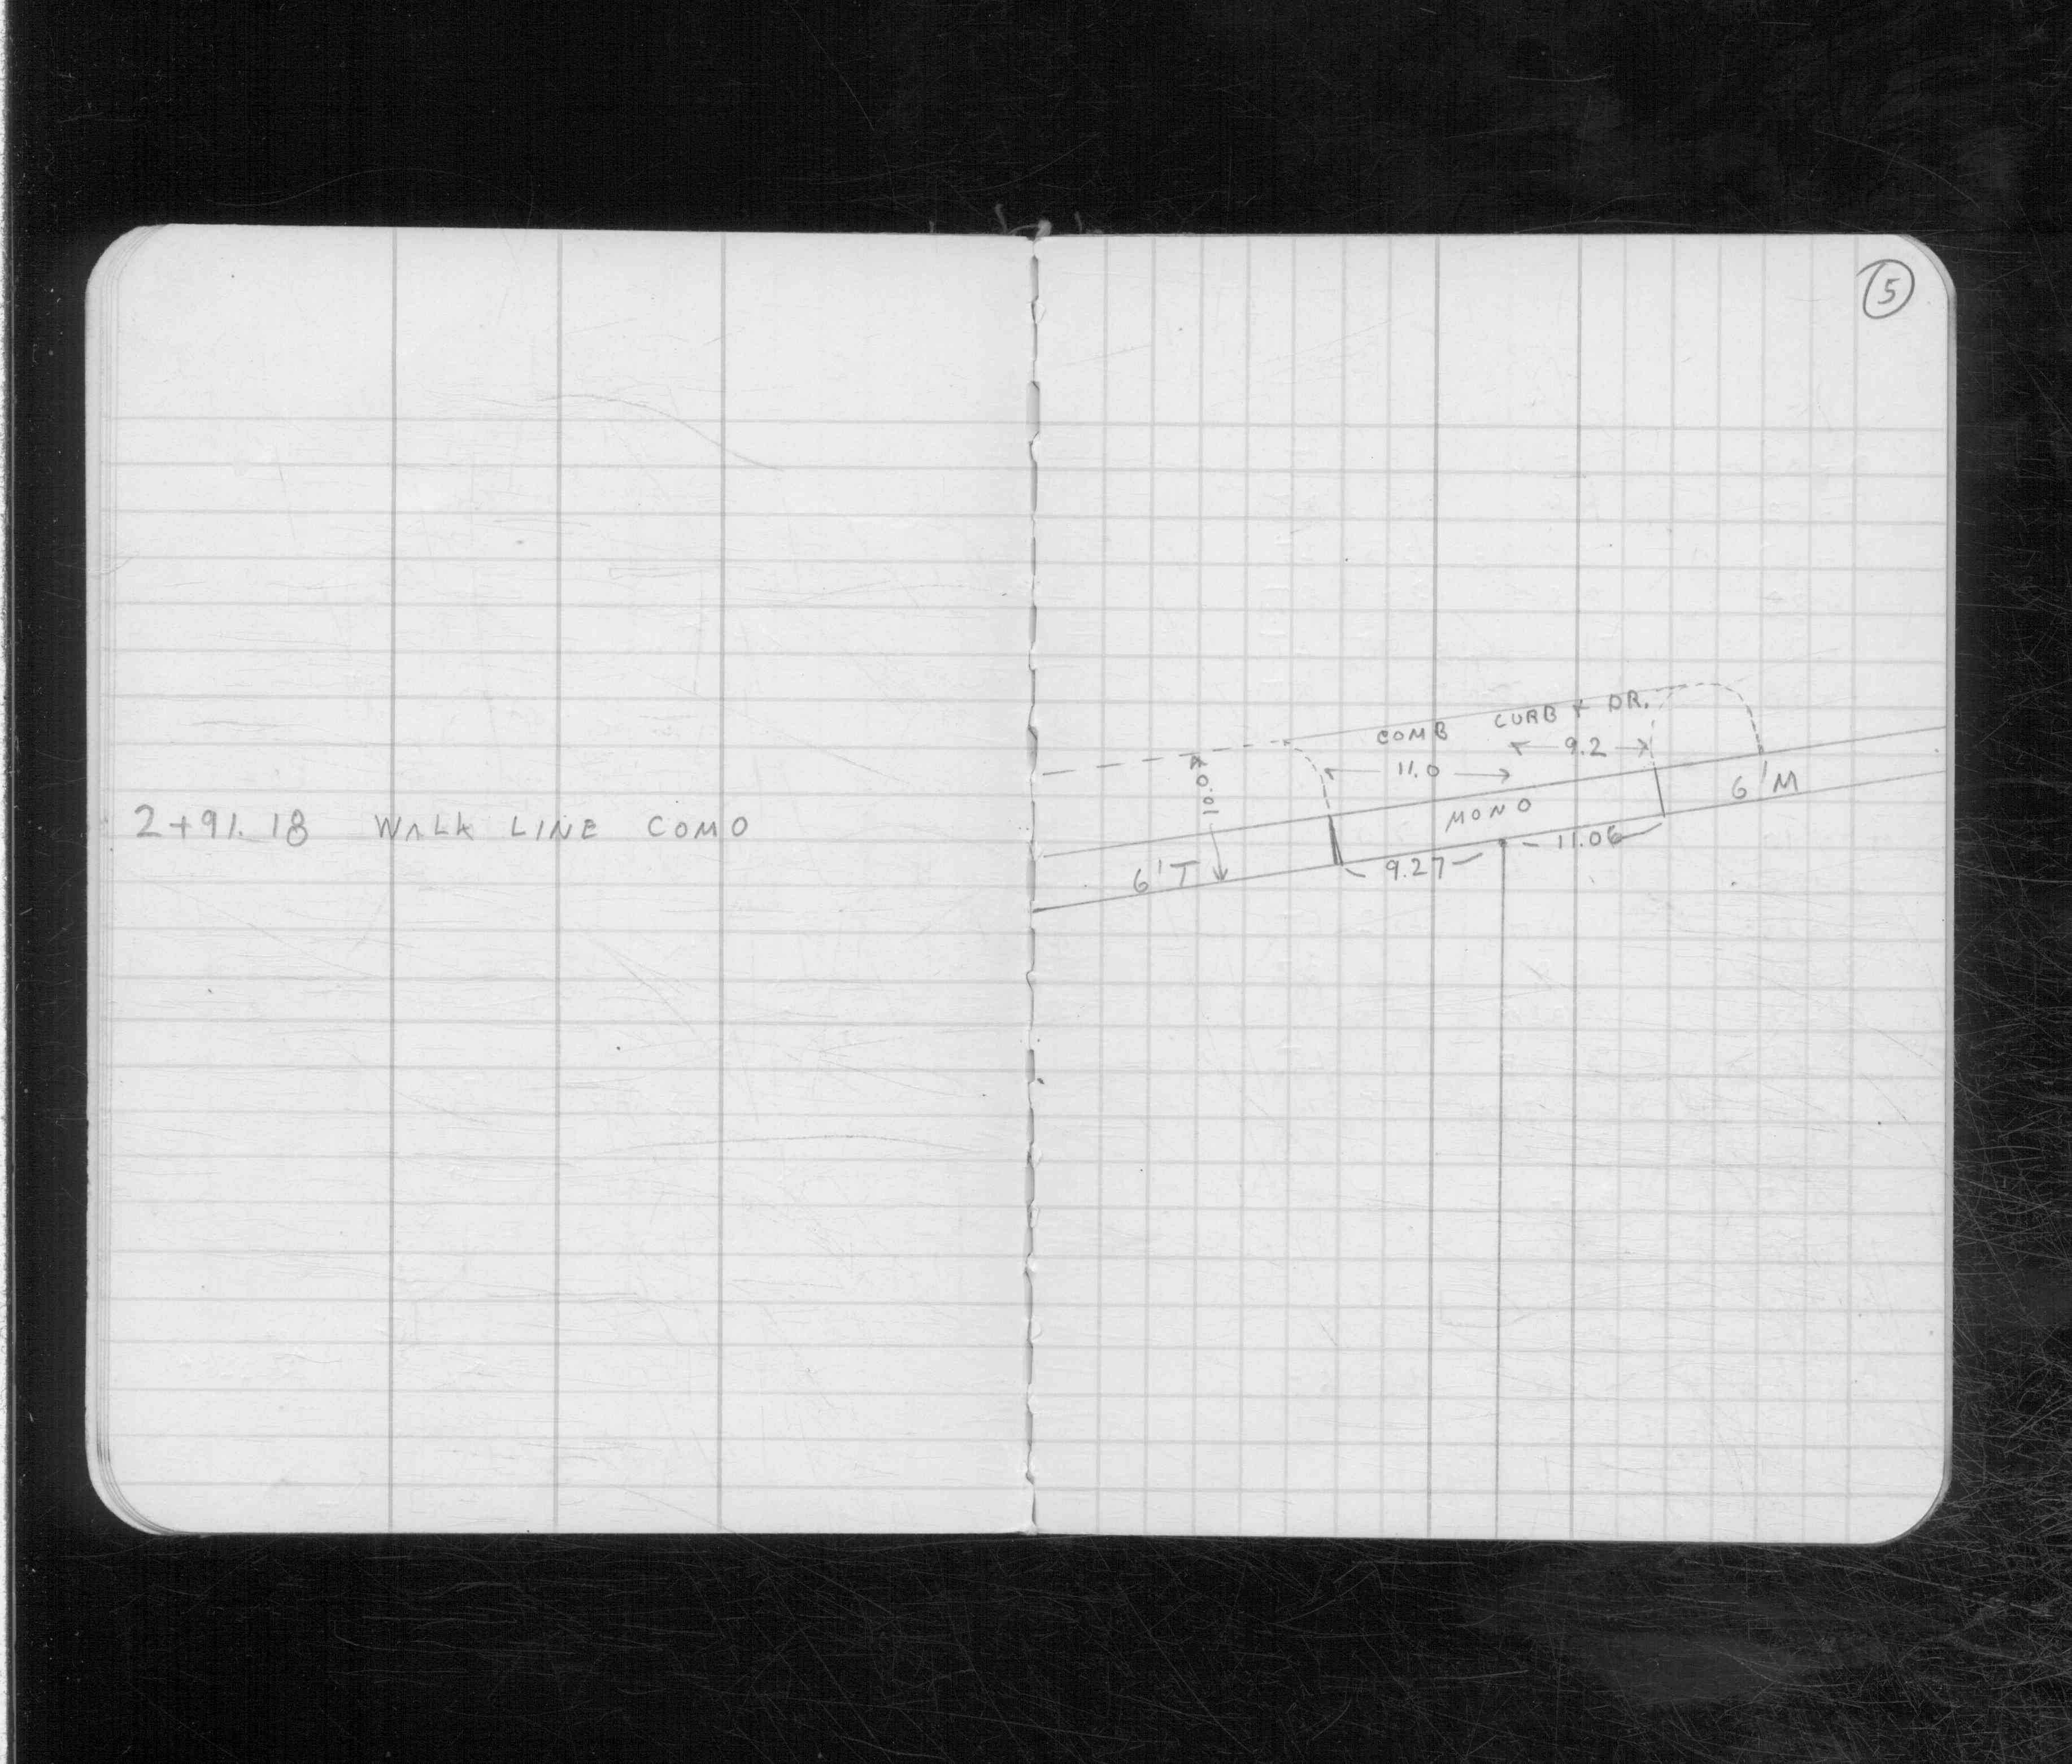 5
2+91.18 WALK LINE COMO
COMB CURB & DR.
9.2
11.0
10.0
MONO
6'M
6'T
9.27
11.06